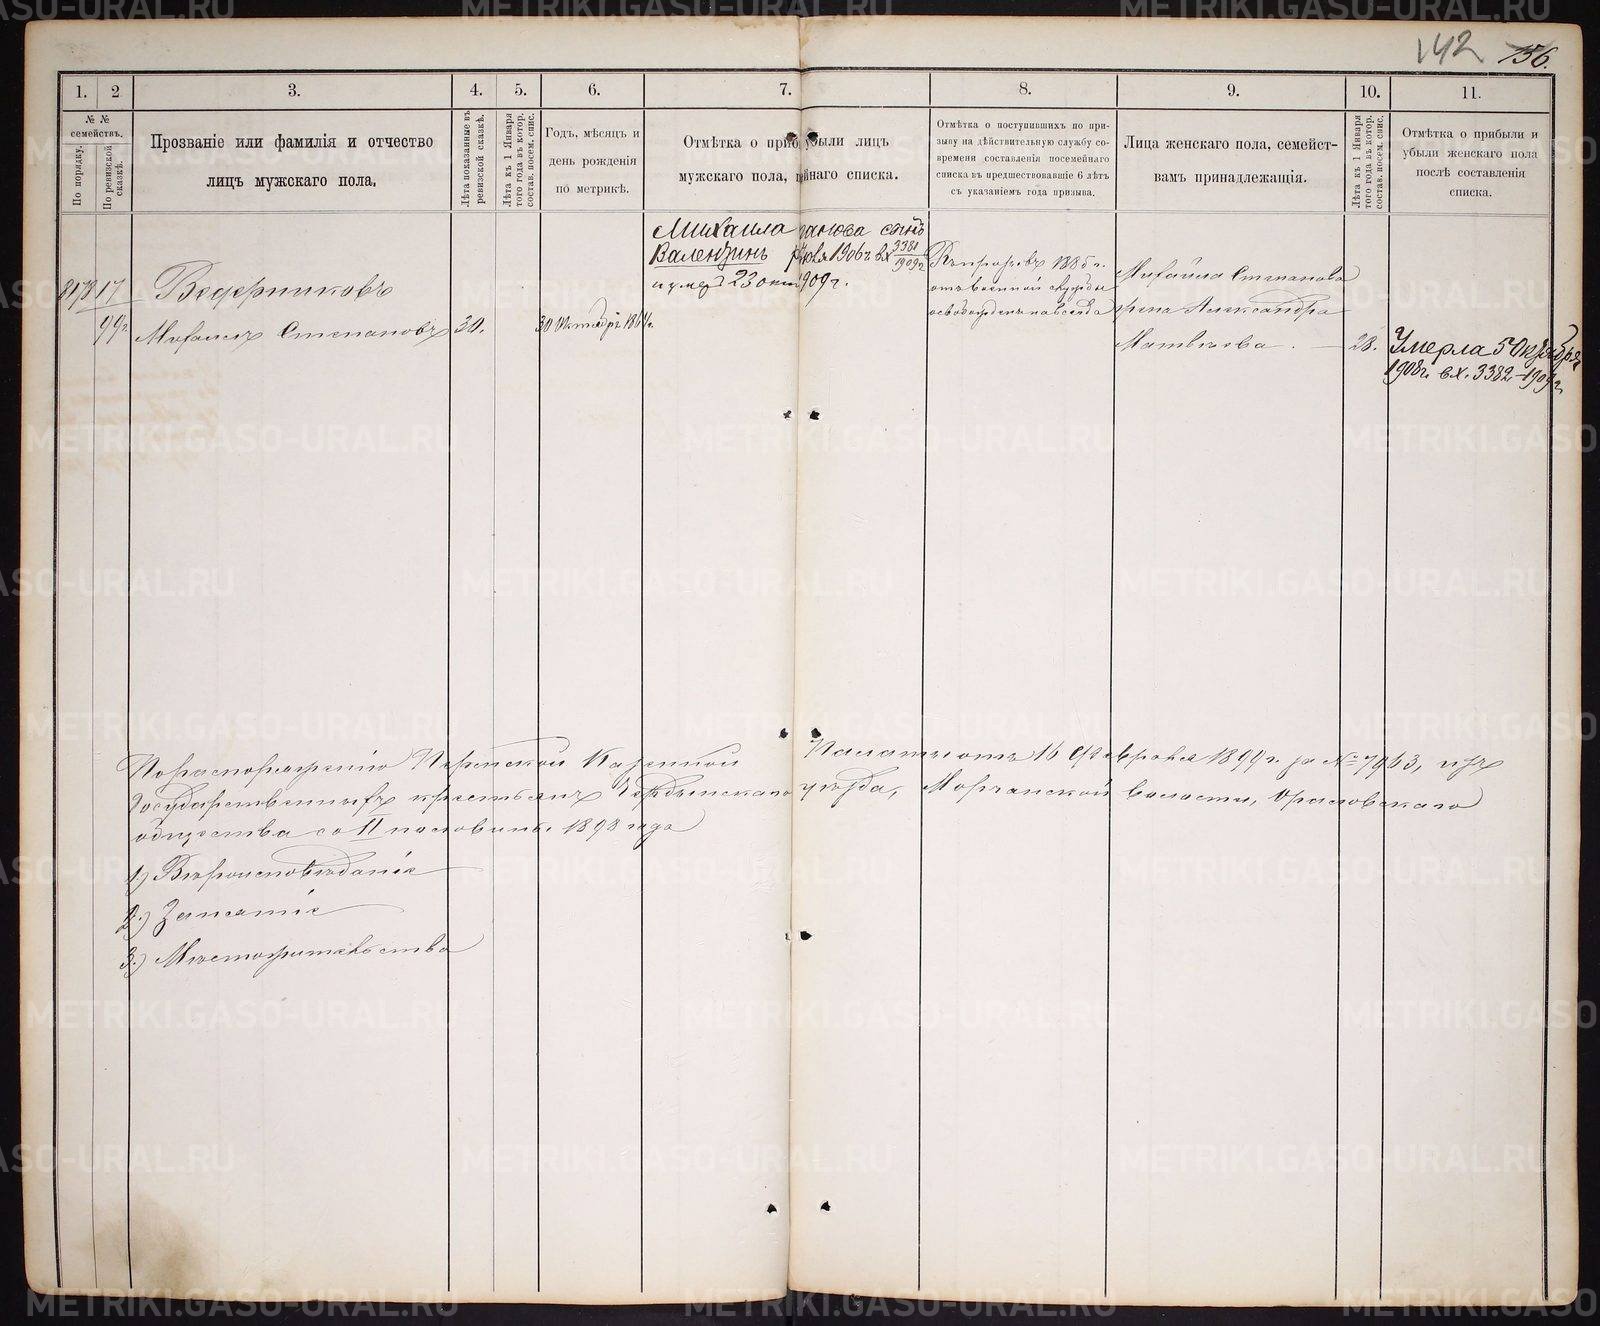 142 156.
1. 2 3. 4. 5. 6. 7. 8. 9. 10. 11.
№ №
семействъ.
По порядку.
По ревизской
сказкѣ.
Прозваніе или фамилія и отчество
лицъ мужскаго пола,
Лѣта показанныя въ
ревизской сказкѣ.
Лѣта къ 1 Января
того года въ котор.
состав. посем. спис.
Годъ, мѣсяцъ и
день рожденія
по метрикѣ.
Отмѣтка о приб убыли лицъ
мужскаго пола, ейнаго списка.
Отмѣтка о поступившихъ по при-
зыву на дѣйствительную службу со-
времени составленія посемейнаго
списка въ предшествовавшіе 6 лѣтъ
съ указаніемъ года призыва.
Лица женскаго пола, семейст-
вамъ принадлежащія.
Лѣта къ 1 Января
того года въ котор.
состав. посем. спис.
Отмѣтка о прибыли и
убыли женскаго пола
послѣ составленія
списка.
17
99г.
Ведерниковъ
Михаилъ Степановъ 30.
30 Октября
Михаила анова сынъ
Валентинъ 1906г вх 3381
1909г
и умеръ 23 1909г.
1885 г.
отъ военной службы
освобожденъ навсегда
Михаила Степанова
жена Александра
Матвѣева. — 28.
Умерла 5 Октября
1908г. вх. 3382 – 1909г.
По распоряженію Пермской Казенной Палаты отъ 16 Февраля 1899 г. за № 7963, изъ
государственныхъ крестьянъ Чердынскаго уѣзда, Морчанской волости,
общества со II половины 1898 года
1.) Вѣроисповѣданіе
2.) Занятіе
3.) Мѣстожительство
METRIKI.GASO-URAL.RU